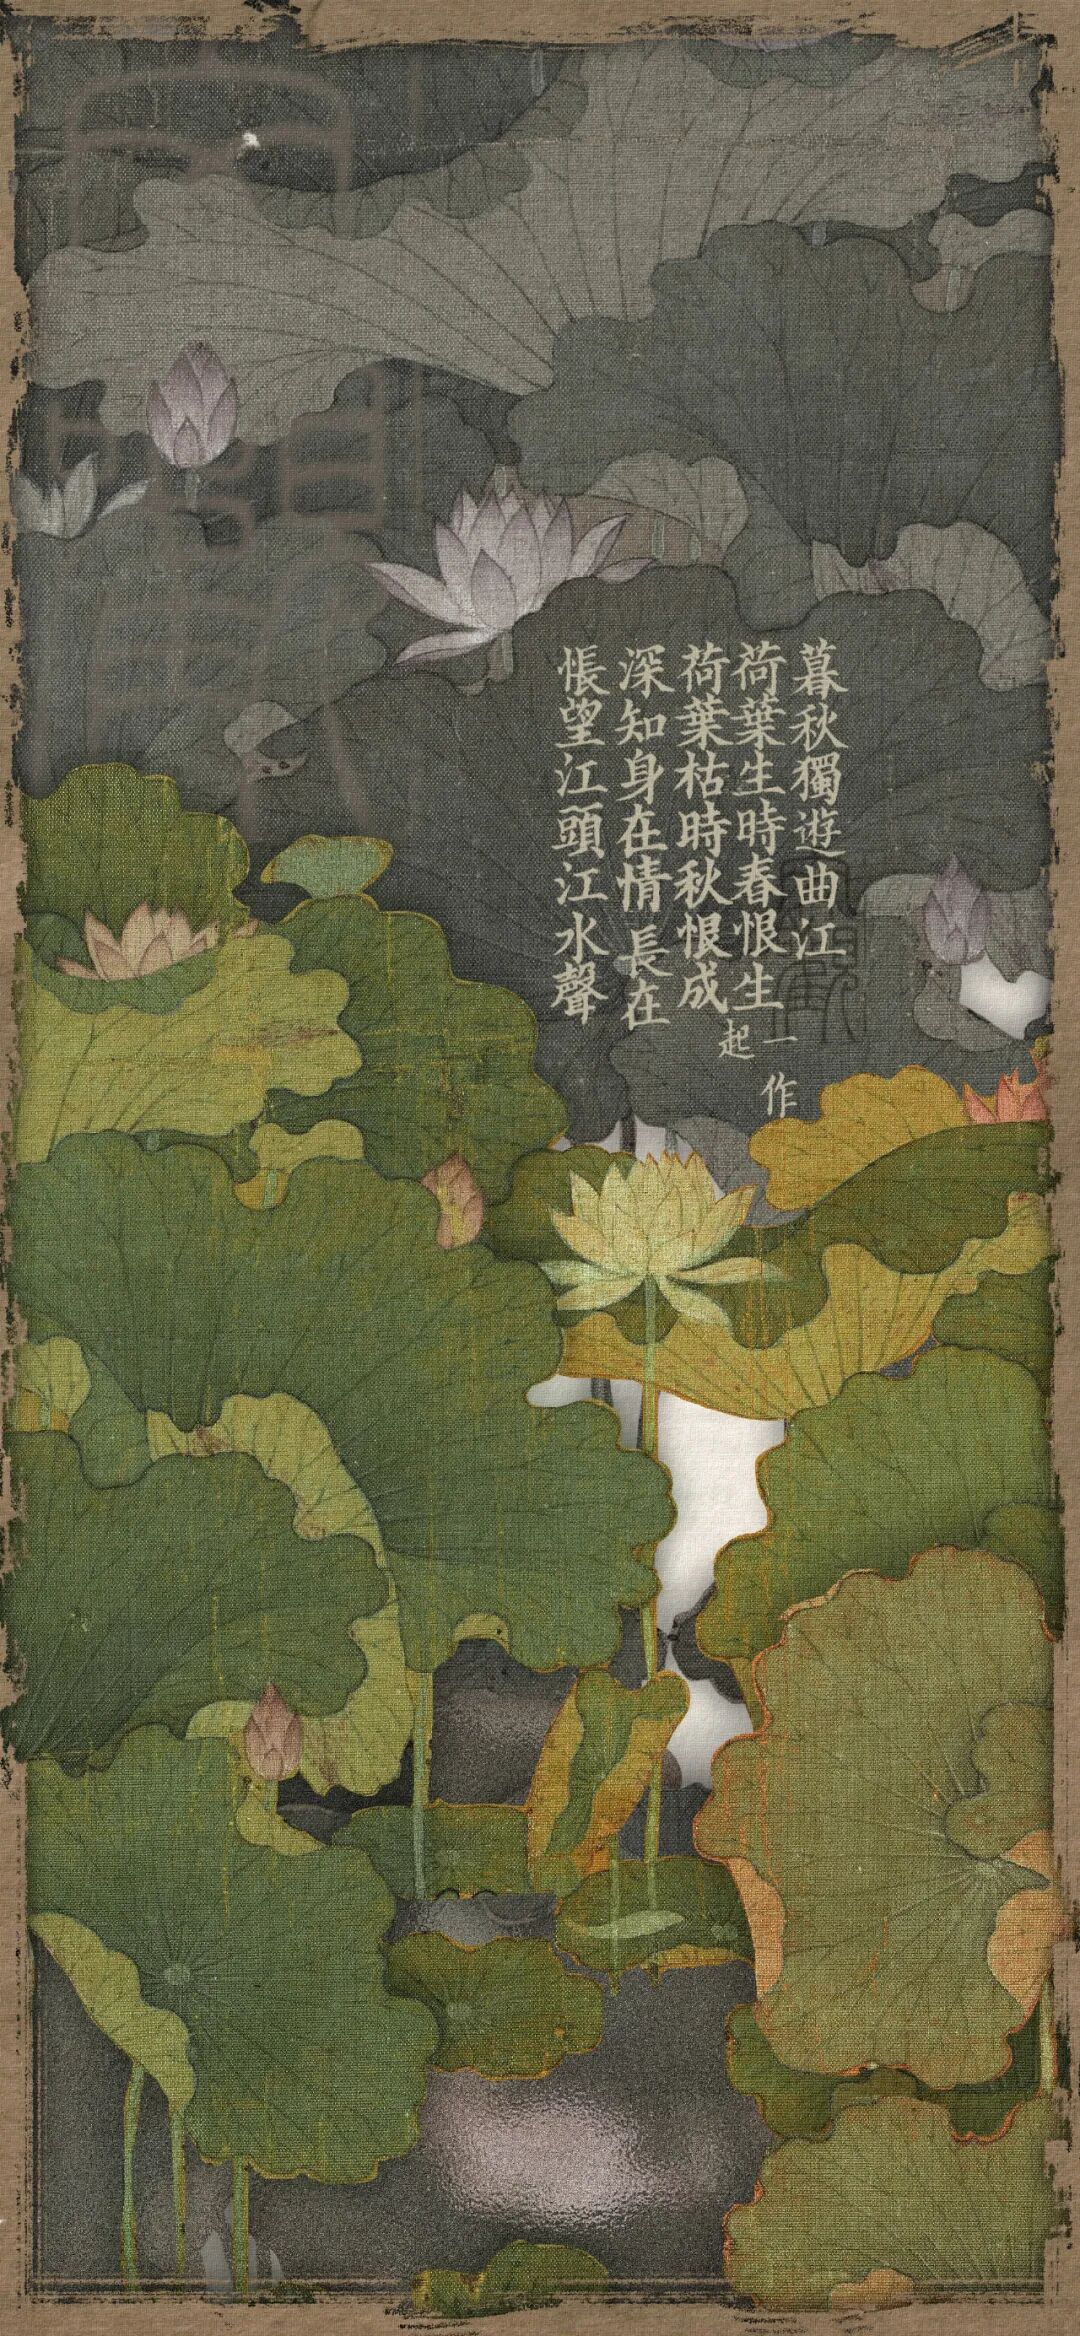 暮秋獨遊曲江
荷葉生時春恨生
荷葉枯時秋恨成
深知身在情長在
悵望江頭江水聲
一起作